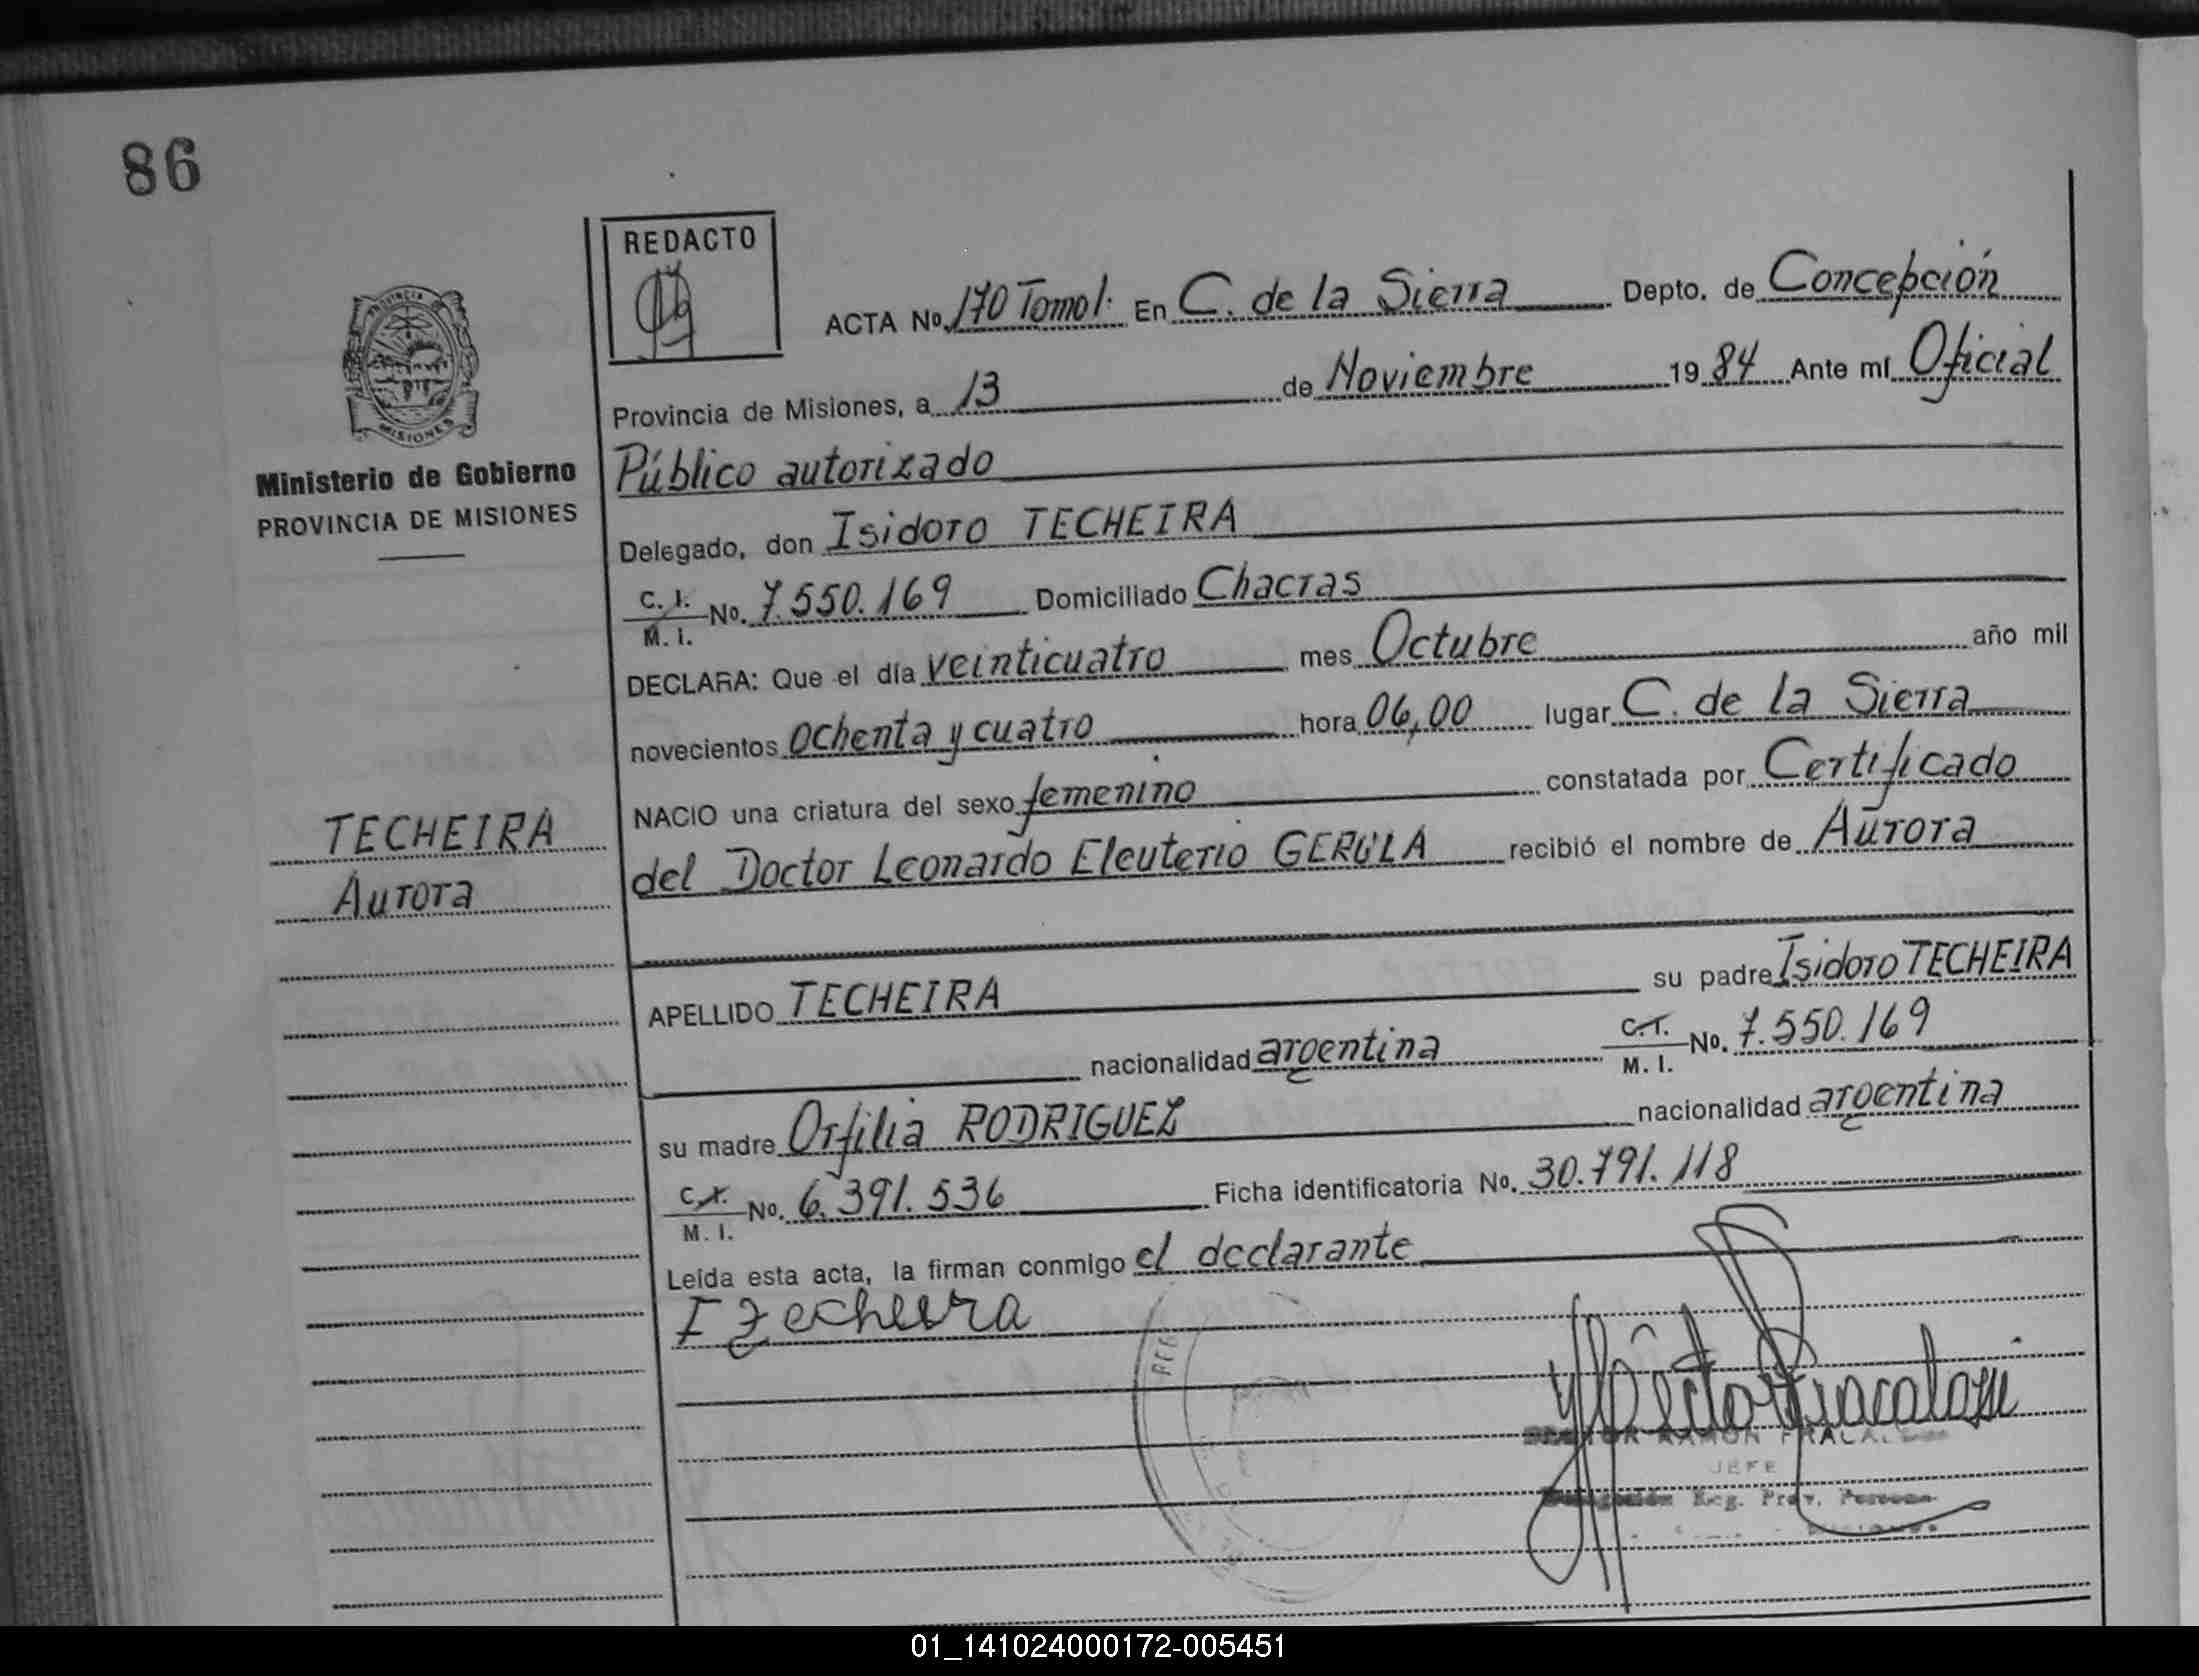 86
REDACTO
ACTA No. 170 Tomo I. En C. de la Sierra Depto. de Concepción
Provincia de Misiones, a 13 de Noviembre 1984 Ante mí Oficial
Público autorizado
PROVINCIA
MISIONES
Ministerio de Gobierno
PROVINCIA DE MISIONES
Delegado, don Isidoro TECHEIRA
C. I. No. 7.550.169 Domiciliado Chacras
M. I.
DECLARA: Que el día veinticuatro mes Octubre año mil
novecientos ochenta y cuatro hora 06,00 lugar C. de la Sierra
NACIO una criatura del sexo femenino constatada por Certificado
del Doctor Leonardo Eleuterio GERULA recibió el nombre de Aurora
TECHEIRA
Aurora
APELLIDO TECHEIRA su padre Isidoro TECHEIRA
nacionalidad argentina C.I. No. 7.550.169
M. I.
su madre Orfilia RODRIGUEZ nacionalidad argentina
C.I. No. 6.391.536 Ficha identificatoria No. 30.791.118
M. I.
Leída esta acta, la firman conmigo el declarante
I Techeira
RAMON
JEFE
Reg. Prov.
01_141024000172-005451